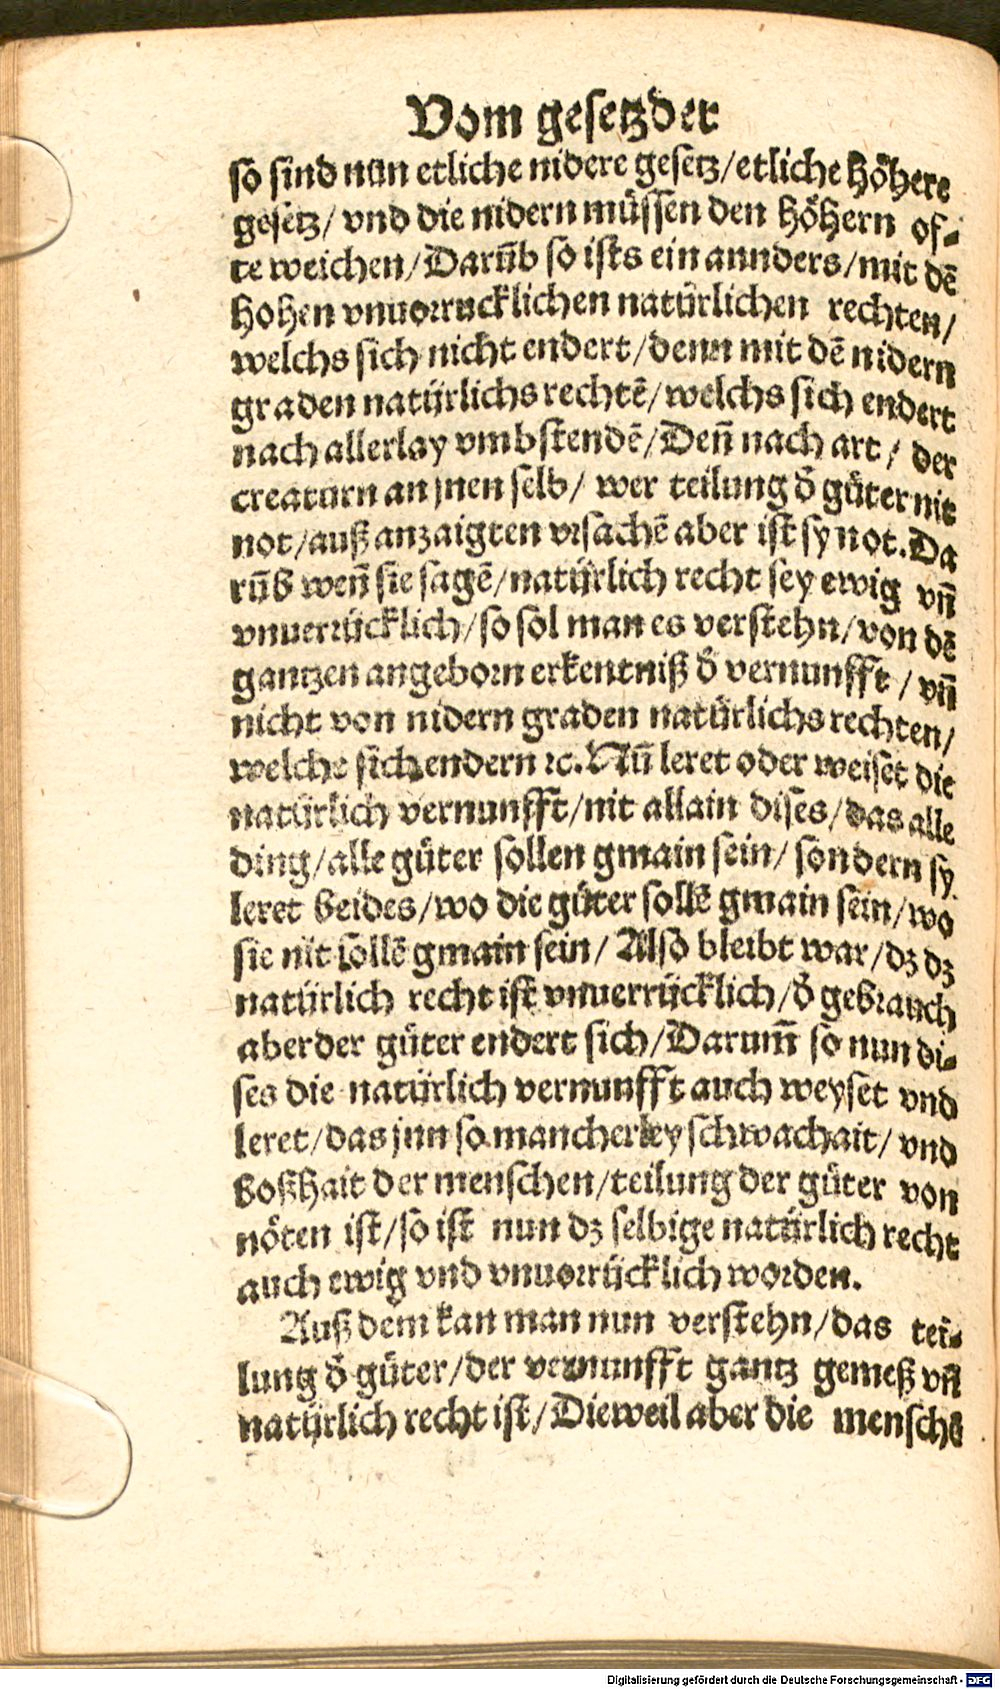 Vom gesetz der
so sind nun etliche nidere gesetz/etliche höhere
gesetz/ vnd die nidern müssen den höhern of-
te weichen/Darūb so ists ein annders/mit dē
hohen vnuorrucklichen natürlichen rechten/
welchs sich nicht endert/denn mit dē nidern
graden natürlichs rechtē/welchs sich endert
nach allerlay vmbstendē/Deñ nach art/ der
creaturn an jnen selb/ wer teilung d̄ güter nit
not/auß anzaigten vrsachē aber ist sy not. Da
rūb weñ sie sagē/natürlich recht sey ewig vñ
vnuerrücklich/so sol man es verstehn/von dē
gantzen angeborn erkentniß d̄ vernunfft/ vñ
nicht von nidern graden natürlichs rechten/
welche sich endern ꝛc. Nū leret oder weiset die
natürlich vernunfft/nit allain dises/das alle
ding/alle güter sollen gmain sein/ sondern sy
leret beides/wo die güter sollē gmain sein/wo
sie nit sollē gmain sein/ Also bleibt war/dz dz
natürlich recht ist vnuerrücklich/d̄ gebrauch
aber der güter endert sich/Darum̄ so nun di-
ses die natürlich vernunfft auch weyset vnd
leret/das jnn so mancherley schwachait/ vnd
boßhait der menschen/teilung der güter von
nöten ist/so ist nun dz selbige natürlich recht
auch ewig vnd vnuorrücklich worden.
Auß dem kan man nun verstehn/das tei-
lung d̄ güter/der vernunfft gantz gemeß vñ
natürlich recht ist/Dieweil aber die menschē
Digitalisierung gefördert durch die Deutsche Forschungsgemeinschaft - DFG